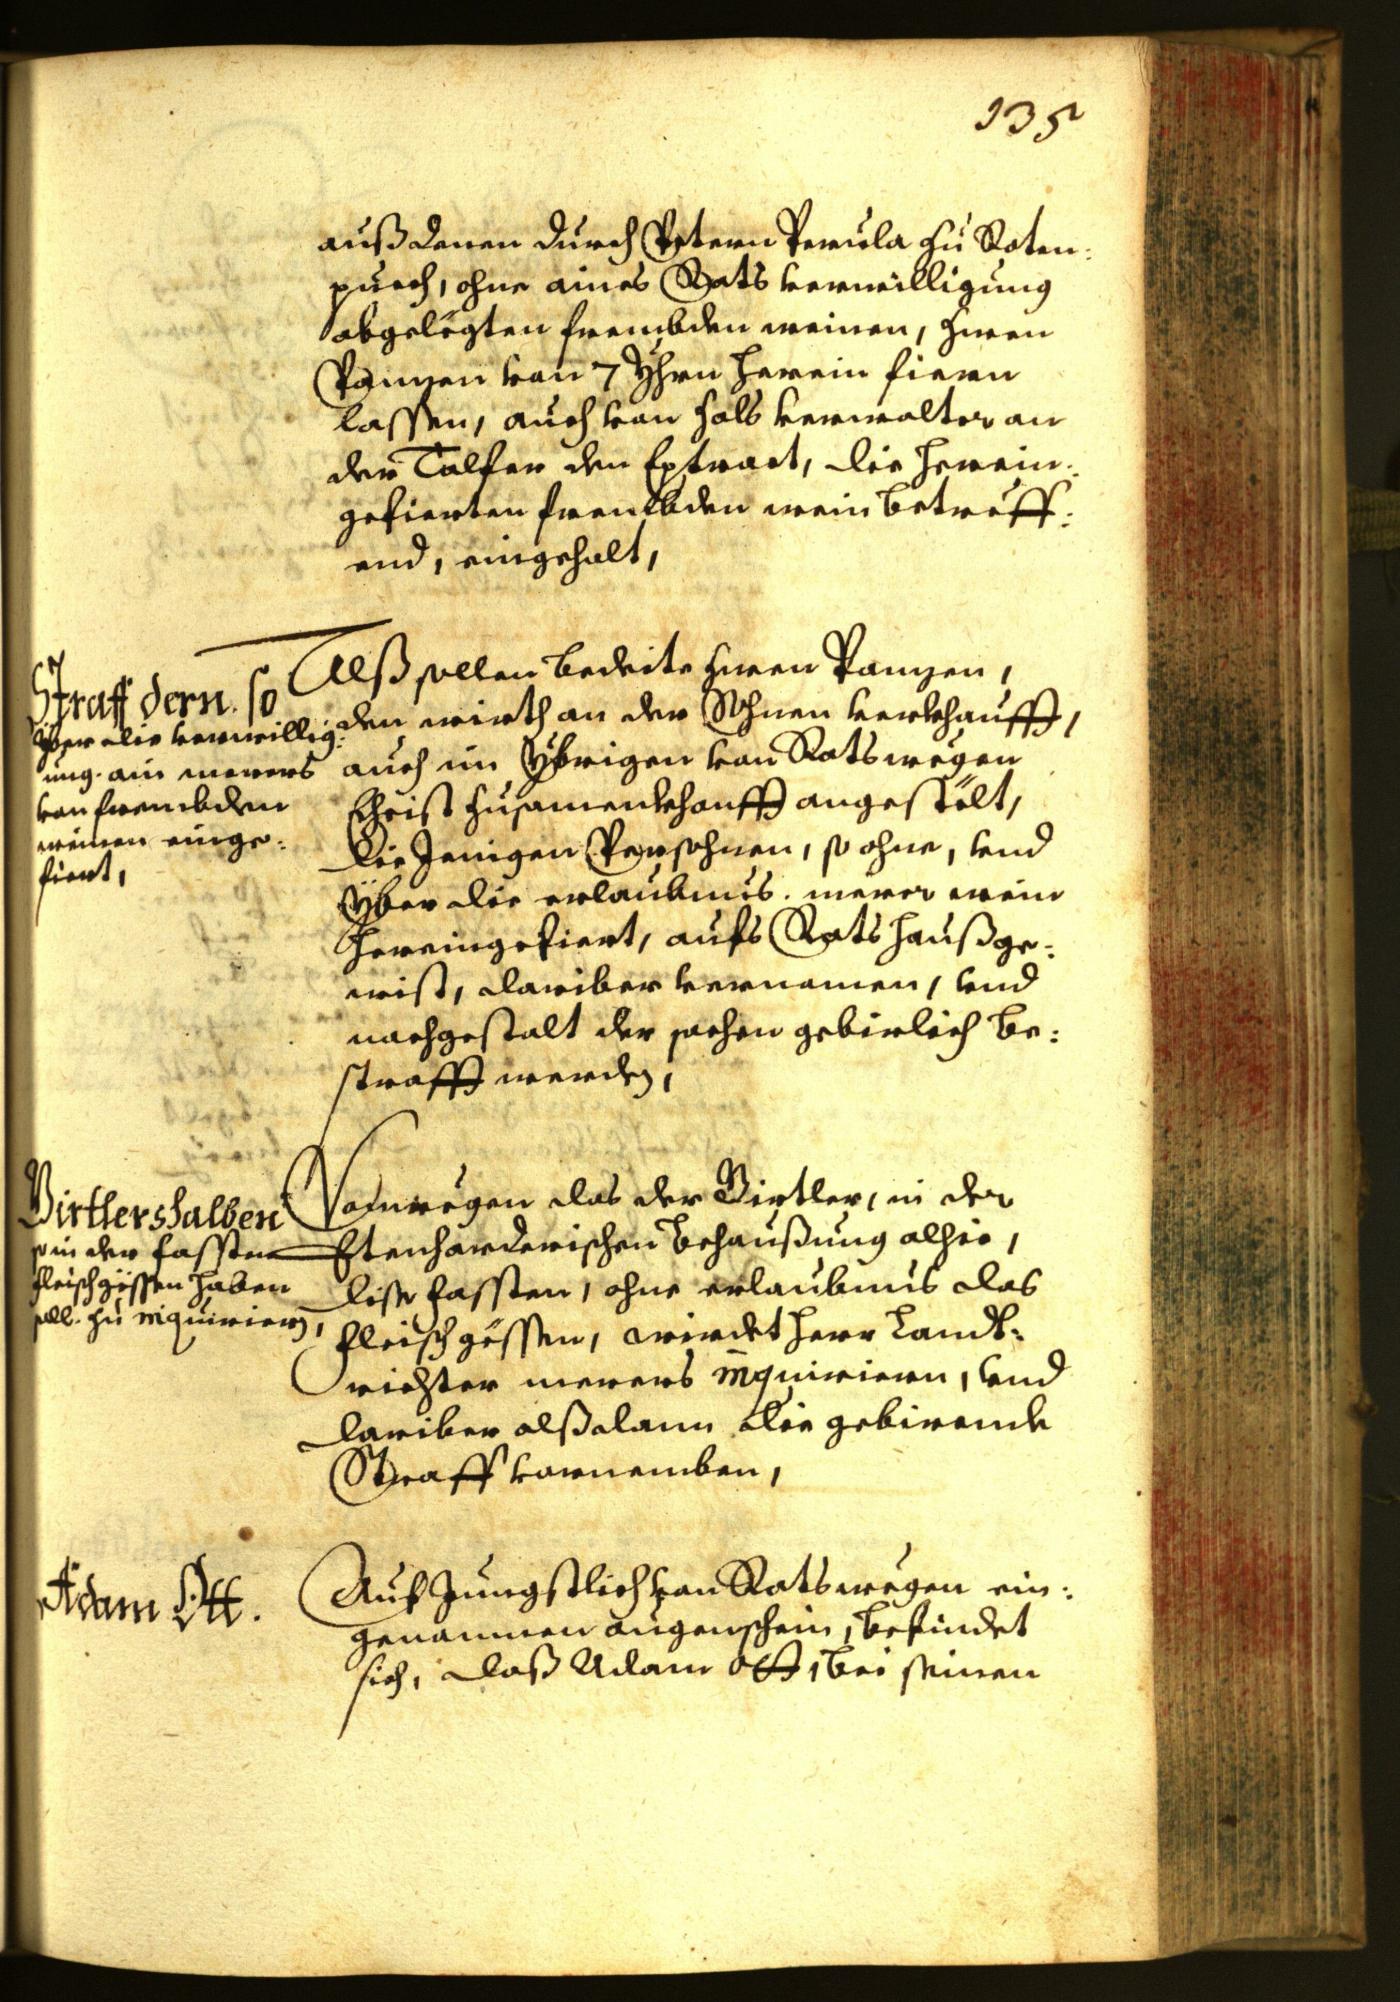 135
auß denen durch Petern Perula zu Roten:
puech, ohne aines Rats verwilligung
abgelegten frembden weinen, zween
Panzen von 7 Yhrn herein fieren
lassen, auch von Zols verwalter an
der Talfer den Extract, die herein:
gefierten frembden wein betreff:
end, eingeholt,
Straff dern. so
yber die verwillig:
ung. ain merers
von frembden
weinen einge:
fiert,
Alß sollen bedeite zween Panzen,
den wirth an der Sohnen verkhaufft,
auch im ybrigen von Rats wegen
 zusamenkhonfft angestelt,
die Jenigen Persohnen, so ohne, vnd
yber die erlaubnus. merer wein
hereingefiert, aufs Ratshauß ge:
wist, dariber vernomen, vnd
nachgestalt der sachen gebirlich be:
strafft werden,
Virtlers halben
so in der fassten
fleisch gössen haben
soll. zu inquiriern,
Vonwegen das der Virtler, in der
Etenharderischen behaußung alhie,
dise fassten, ohne erlaubnus das
fleisch gössen, wirdet herr Landt:
richter merers inquiriern, vnd
dariber alßdann die gebirende
Straff vornemben,
Adam Ott.
Auf Jungstlich von Rats wegen ein:
genomnen augenschein, befindet
sich, daß Adam Ott, bei seinen